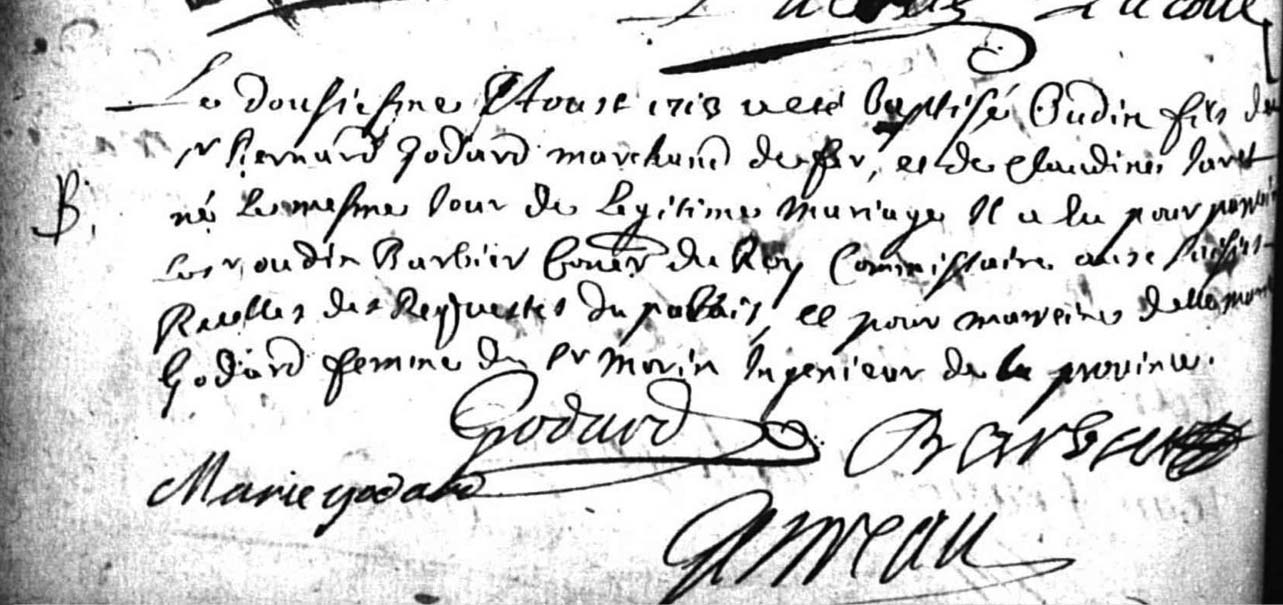 Le dousiesme Aoust 1713 a esté baptisé Oudin fils du
B. sr Bernard Godard marchand de fer, et de Claudine
né le mesme iour de legitime mariage Il a eu pour parain
le sr oudin Barbier Coner du Roy Commissaire aux saisies
Reelles des Requestes du palais, et pour mareine delle marie
Godard femme du sr morin Ingenieur de la province.
Godard Barbier
Marie godard